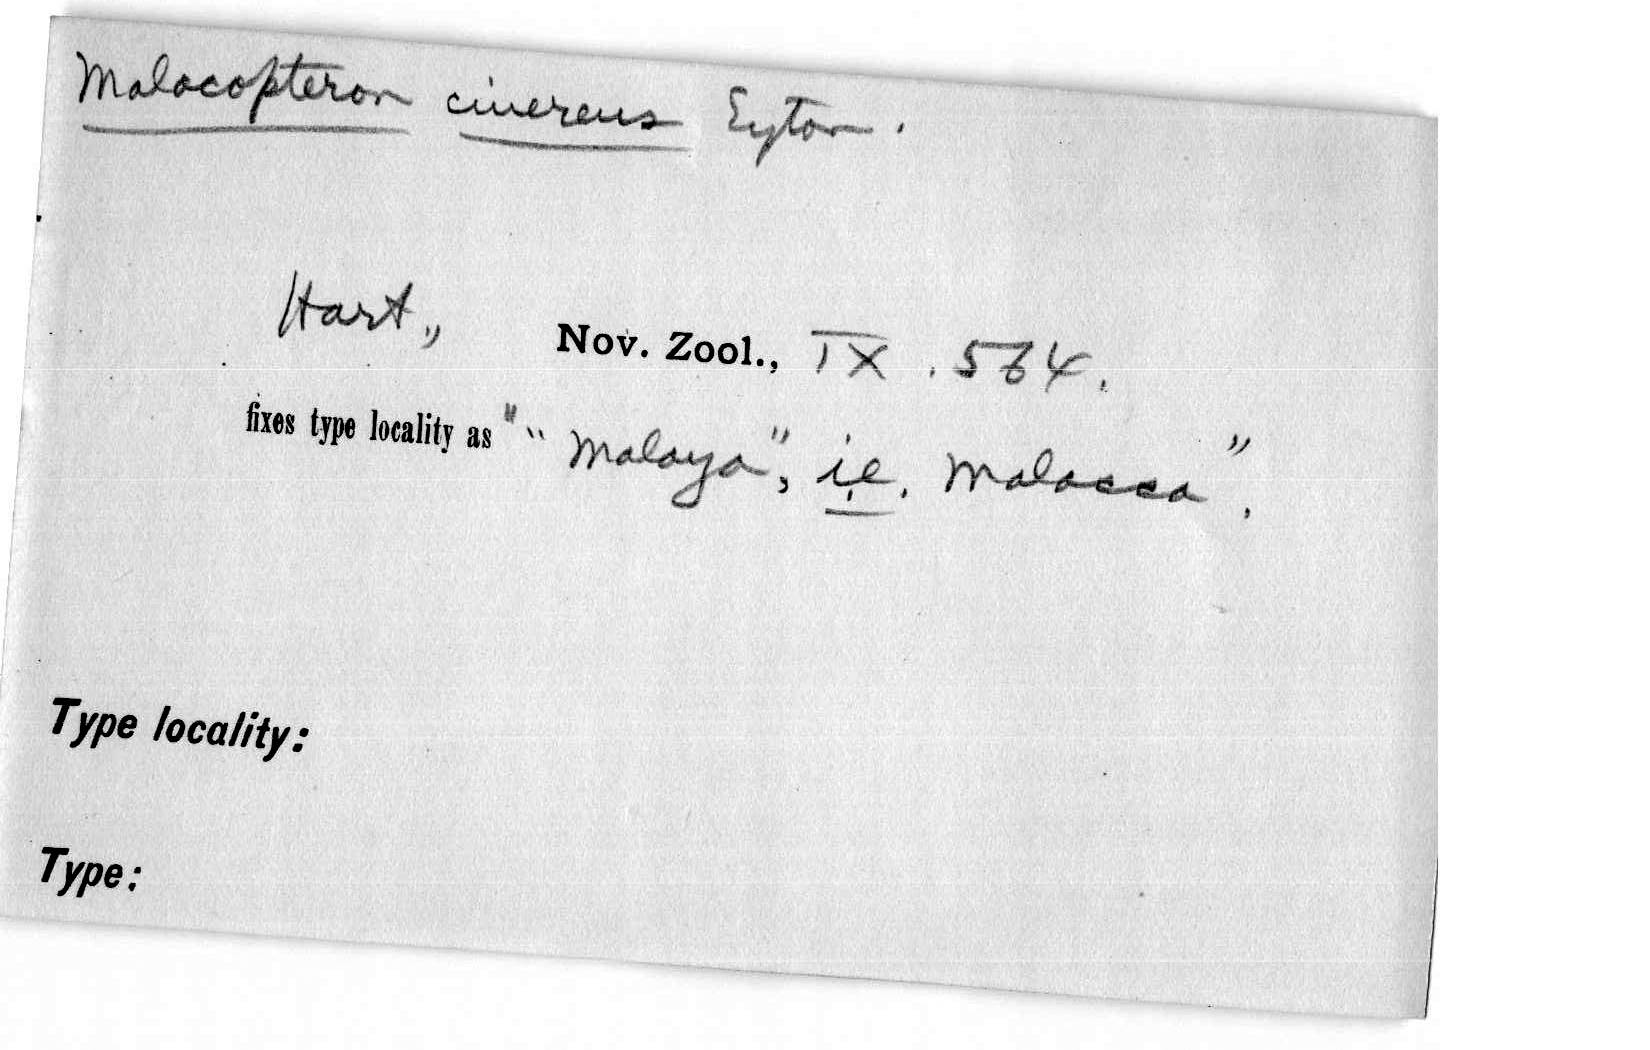 Malacopteron cinereus Eyton.
Hart., Nov. Zool., IX. 564.
fixes type locality as " "Malaya", i.e. Malacca",
Type locality:
Type: